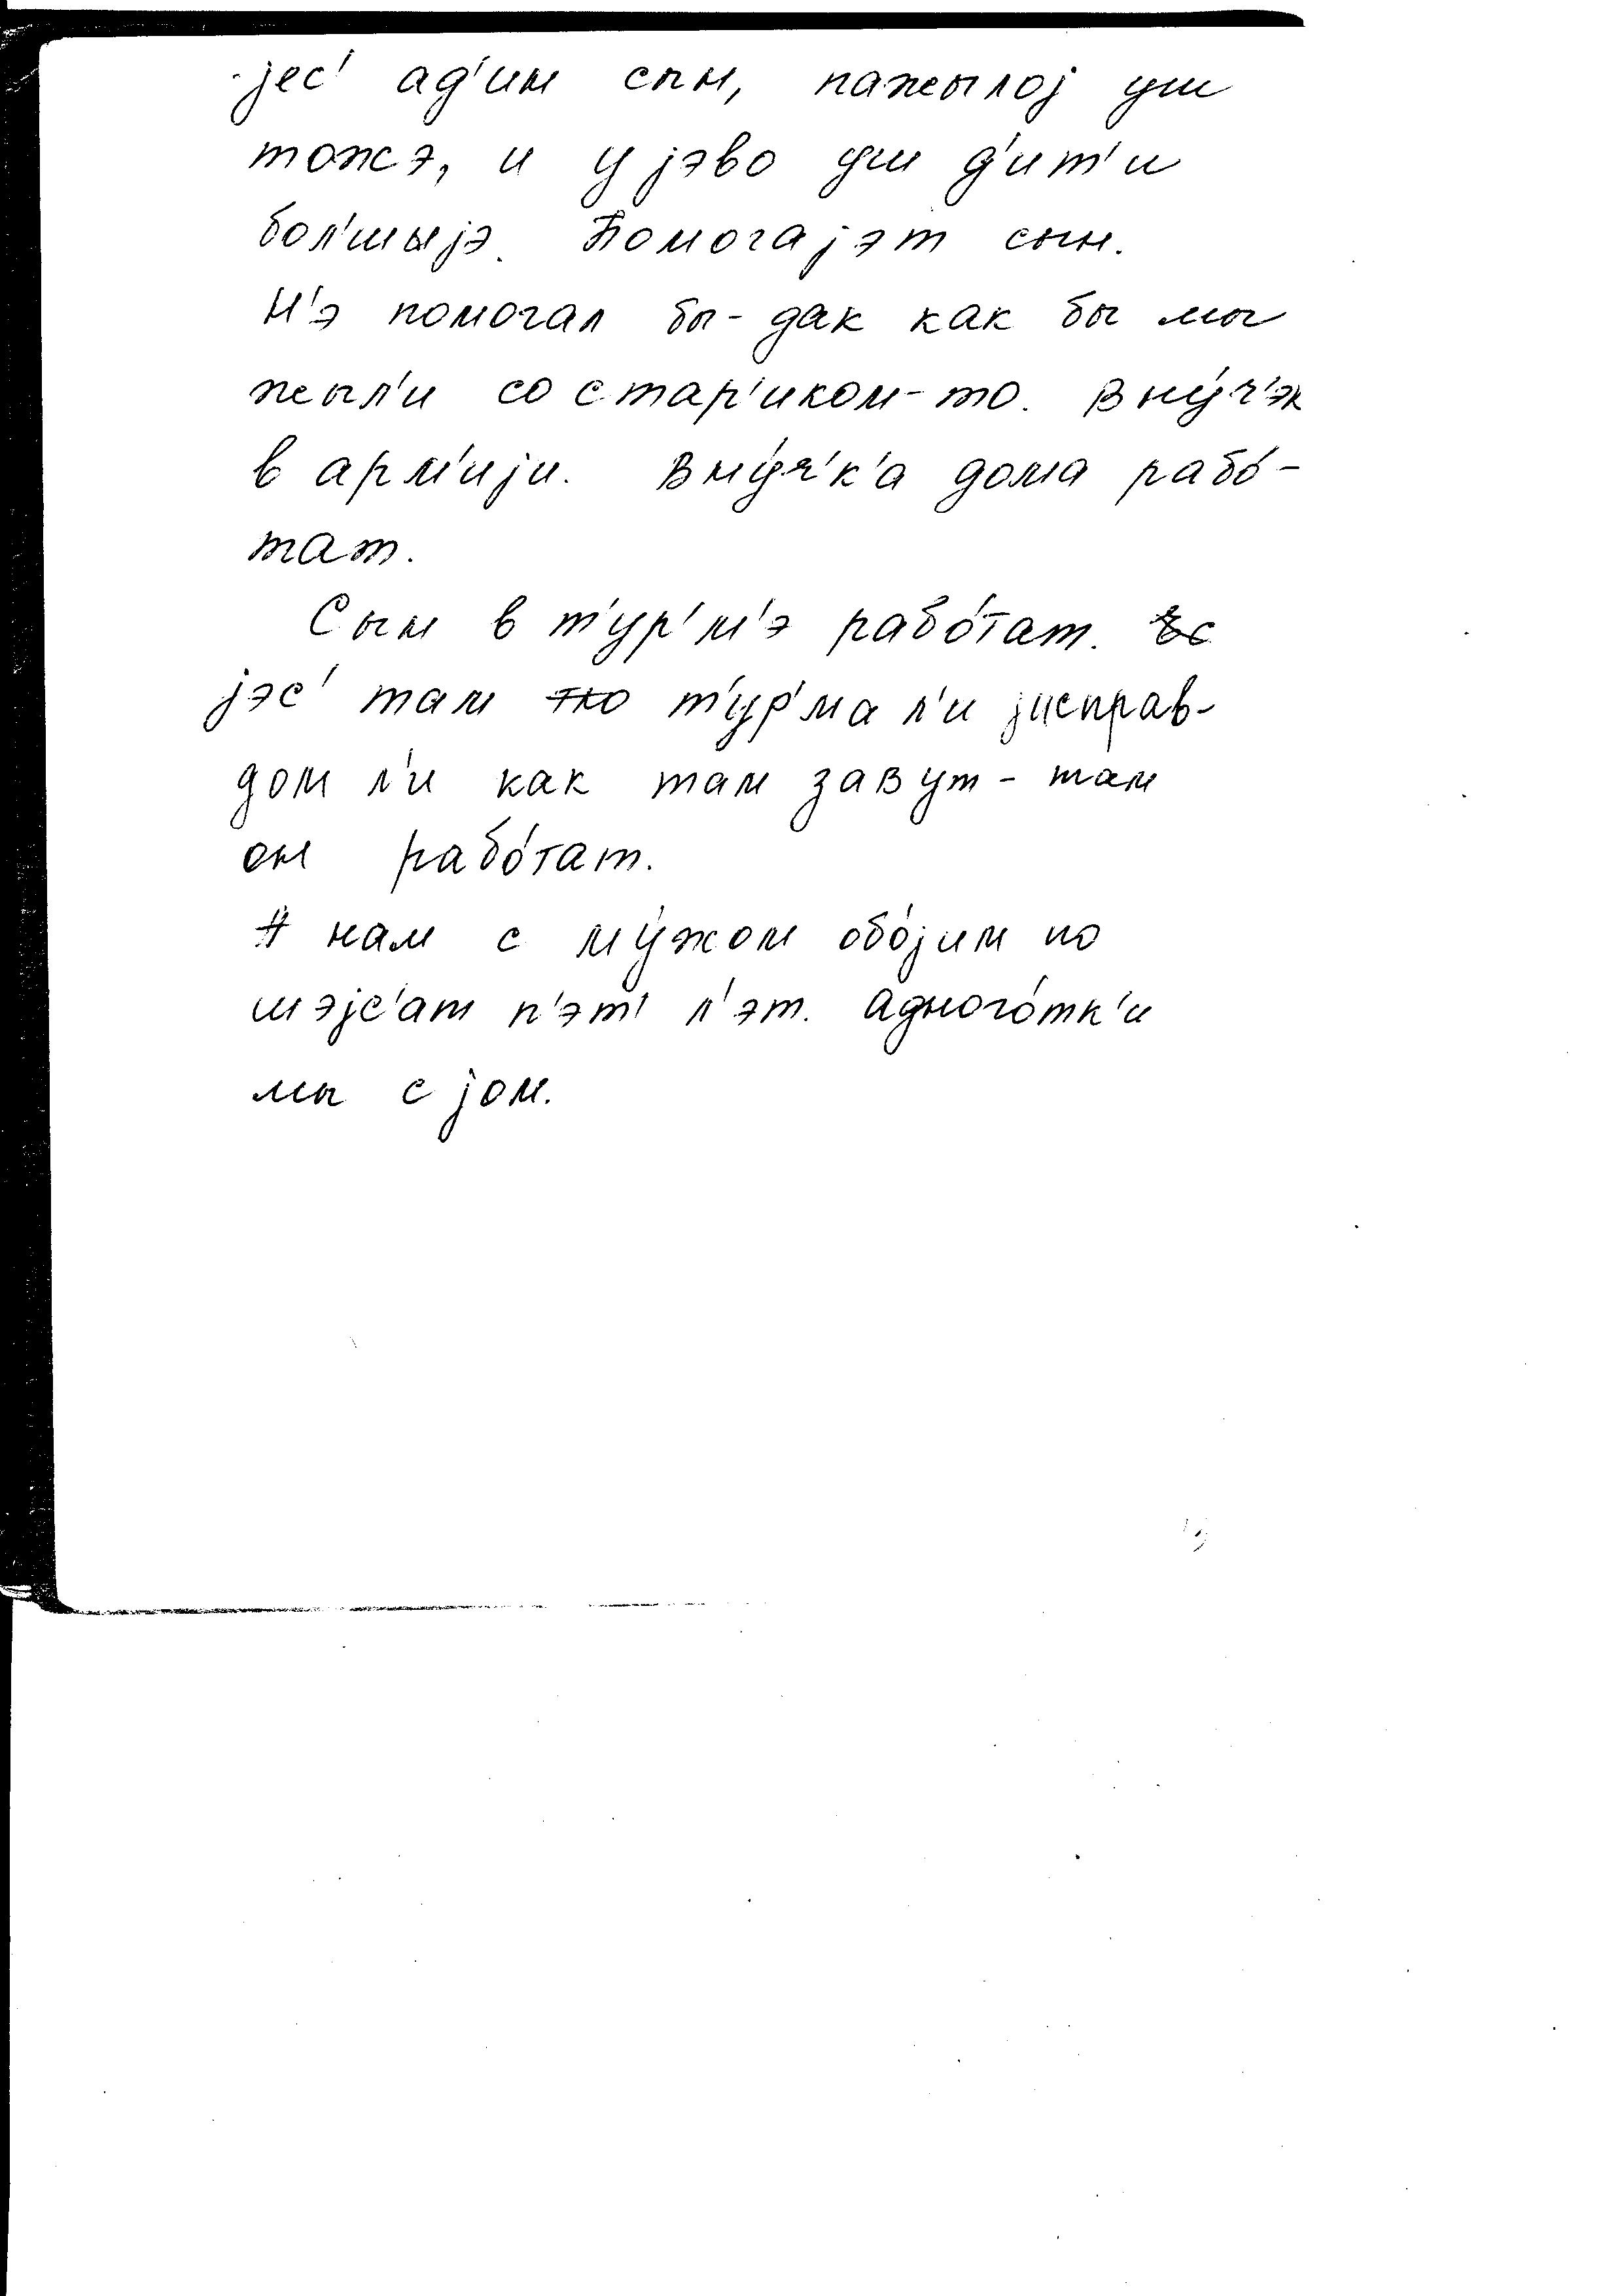 jес' ад'ин сын, пажылоj уш
тожэ, и у jэво уш д'ит'и
бол'шыjэ. Помогаjэт сын.
Н'э помогал бы - дак как бы мы
жыл'и со стар'иком-то. Вну́ч'эк
в арм'иjи. Вну́ч'к'а дома рабо́-
тат.
Сын в т'ур'м'э рабо́тат.
jэс' там т'ур'ма л'и jисправ-
дом л'и как там завут - там
он рабо́тат.
А нам с му́жом обо́jим по
шэjс'ат п'эт' л'эт. Адного́тк'и
мы с jом.